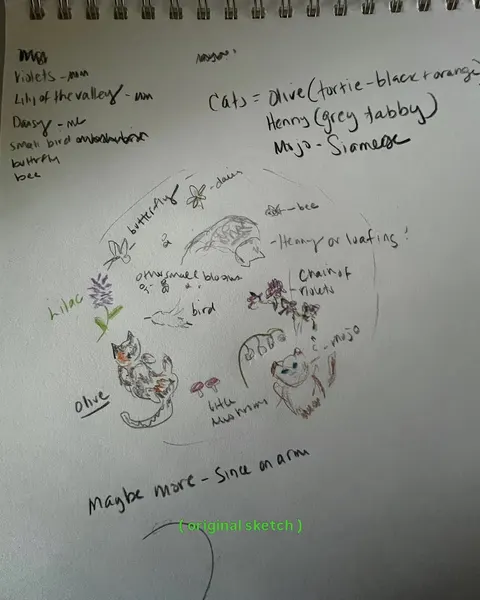 Violets - mom
Lily of the valley - mom
Daisy - me
small bird
butterfly
bee
Cats = Olive (tortie - black + orange)
Henny (grey tabby)
Mojo - Siamese
butterfly
- daisy
- bee
- Henny or loafing?
other small blooms
Chain of violets
Lilac
bird
- mojo
Olive
little mushrooms
Maybe more - since on arm
(original sketch)